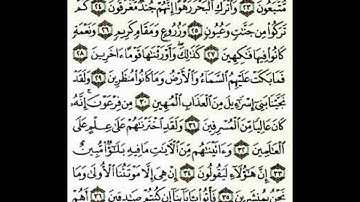 مُّتَّبَعُونَ ٢٣ وَٱتۡرُكِ ٱلۡبَحۡرَ رَهۡوًاۖ إِنَّهُمۡ جُندٞ مُّغۡرَقُونَ ٢٤ كَمۡ
تَرَكُواْ مِن جَنَّٰتٖ وَعُيُونٖ ٢٥ وَزُرُوعٖ وَمَقَامٖ كَرِيمٖ ٢٦ وَنَعۡمَةٖ
كَانُواْ فِيهَا فَٰكِهِينَ ٢٧ كَذَٰلِكَۖ وَأَوۡرَثۡنَٰهَا قَوۡمًا ءَاخَرِينَ ٢٨
فَمَا بَكَتۡ عَلَيۡهِمُ ٱلسَّمَآءُ وَٱلۡأَرۡضُ وَمَا كَانُواْ مُنظَرِينَ ٢٩ وَلَقَدۡ
نَجَّيۡنَا بَنِيٓ إِسۡرَٰٓءِيلَ مِنَ ٱلۡعَذَابِ ٱلۡمُهِينِ ٣٠ مِن فِرۡعَوۡنَۚ إِنَّهُۥ
كَانَ عَالِيٗا مِّنَ ٱلۡمُسۡرِفِينَ ٣١ وَلَقَدِ ٱخۡتَرۡنَٰهُمۡ عَلَىٰ عِلۡمٍ عَلَى
ٱلۡعَٰلَمِينَ ٣٢ وَءَاتَيۡنَٰهُم مِّنَ ٱلۡأٓيَٰتِ مَا فِيهِ بَلَٰٓؤٞاْ مُّبِينٌ
٣٣ إِنَّ هَٰٓؤُلَآءِ لَيَقُولُونَ ٣٤ إِنۡ هِيَ إِلَّا مَوۡتَتُنَا ٱلۡأُولَىٰ وَمَا
نَحۡنُ بِمُنشَرِينَ ٣٥ فَأۡتُواْ بِـَٔابَآئِنَآ إِن كُنتُمۡ صَٰدِقِينَ ٣٦ أَهُمۡ